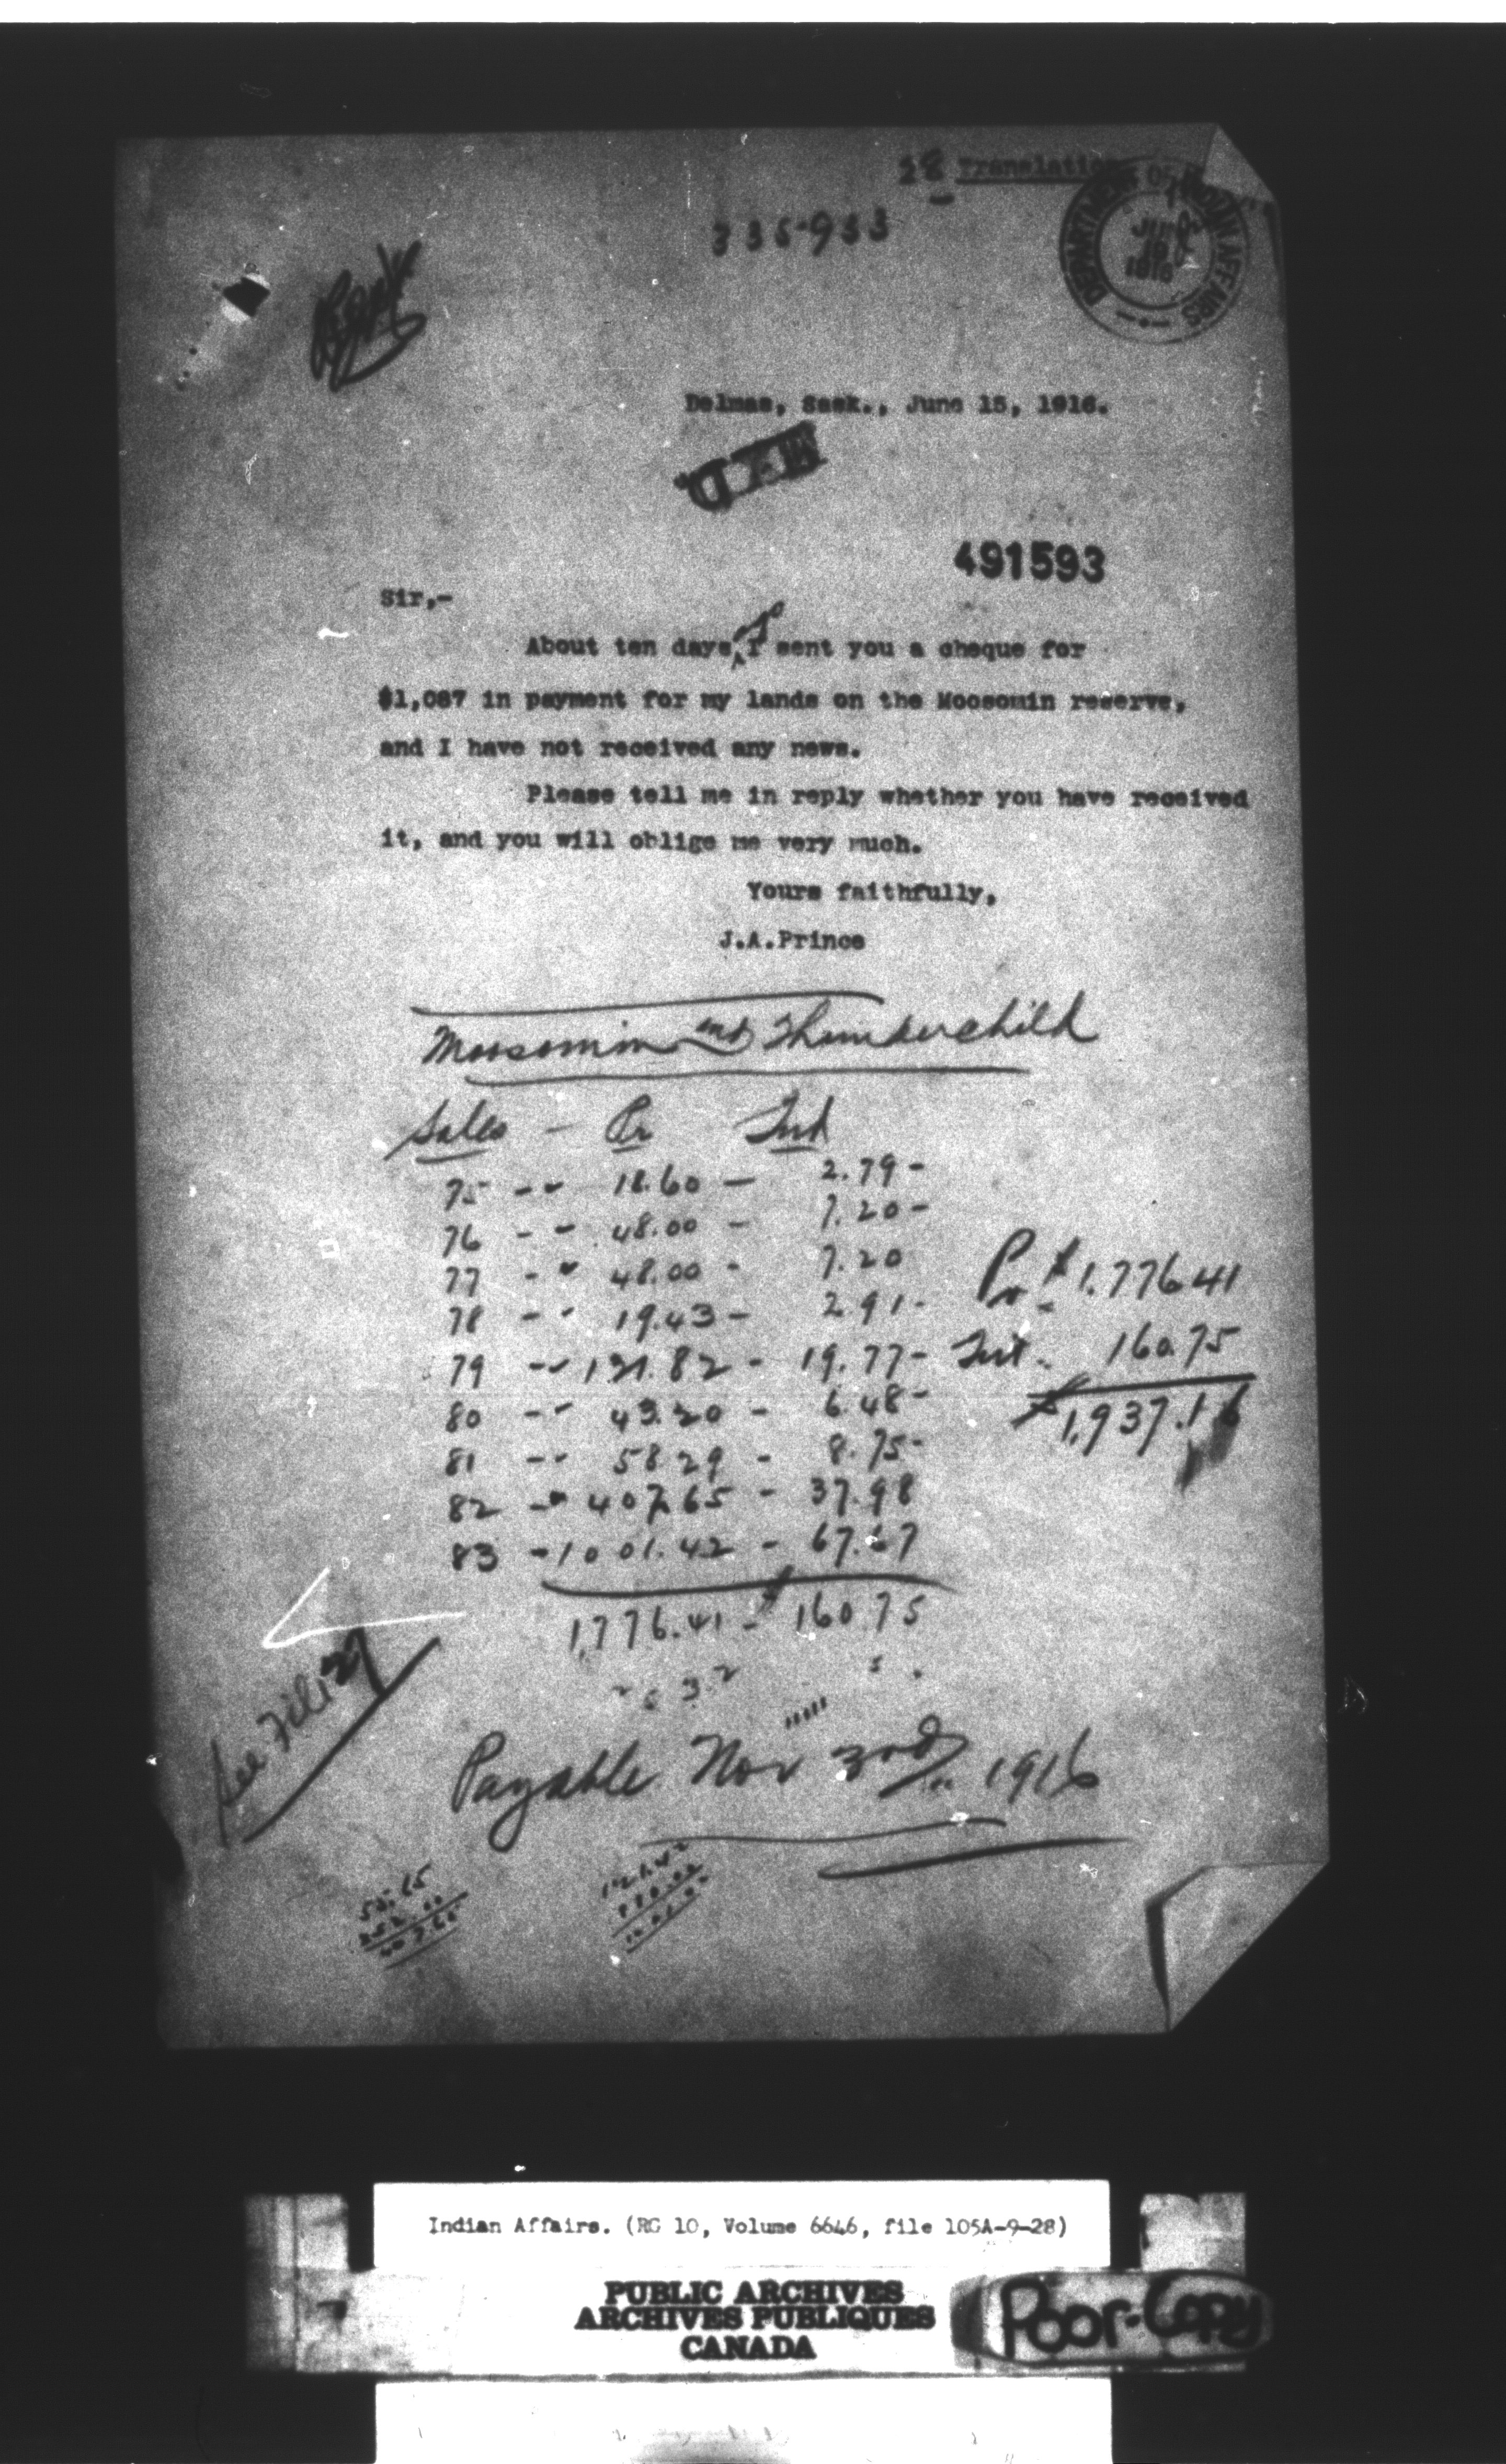 28 Translation
336-933
DEPARTMENT OF INDIAN AFFAIRS
1916
Delmas, Sask., June 15, 1916.
491593
Sir,-
About ten days ago I sent you a cheque for
$1,087 in payment for my lands on the Moosomin reserve,
and I have not received any news.
Please tell me in reply whether you have received
it, and you will oblige me very much.
Yours faithfully,
J.A.Prince
Moosomin and Thunderchild
Sales - Pr Int
75 -- 18.60 - 2.79 -
76 -- 48.00 - 7.20 -
77 -- 48.00 - 7.20
78 -- 19.43 - 2.91 -
79 -- 131.82 - 19.77 -
80 -- 43.20 - 6.48 -
81 -- 58.29 - 8.75 -
82 -- 407.65 - 37.98
83 - 1001.42 - 67.67
1,776.41 - $160.75
Pr $1,776.41
Int. 160.75
$1,937.16
See Filing
Payable Nov 3rd 1916
Indian Affairs. (RG 10, Volume 6646, file 105A-9-28)
PUBLIC ARCHIVES
ARCHIVES PUBLIQUES
CANADA
Poor-Copy